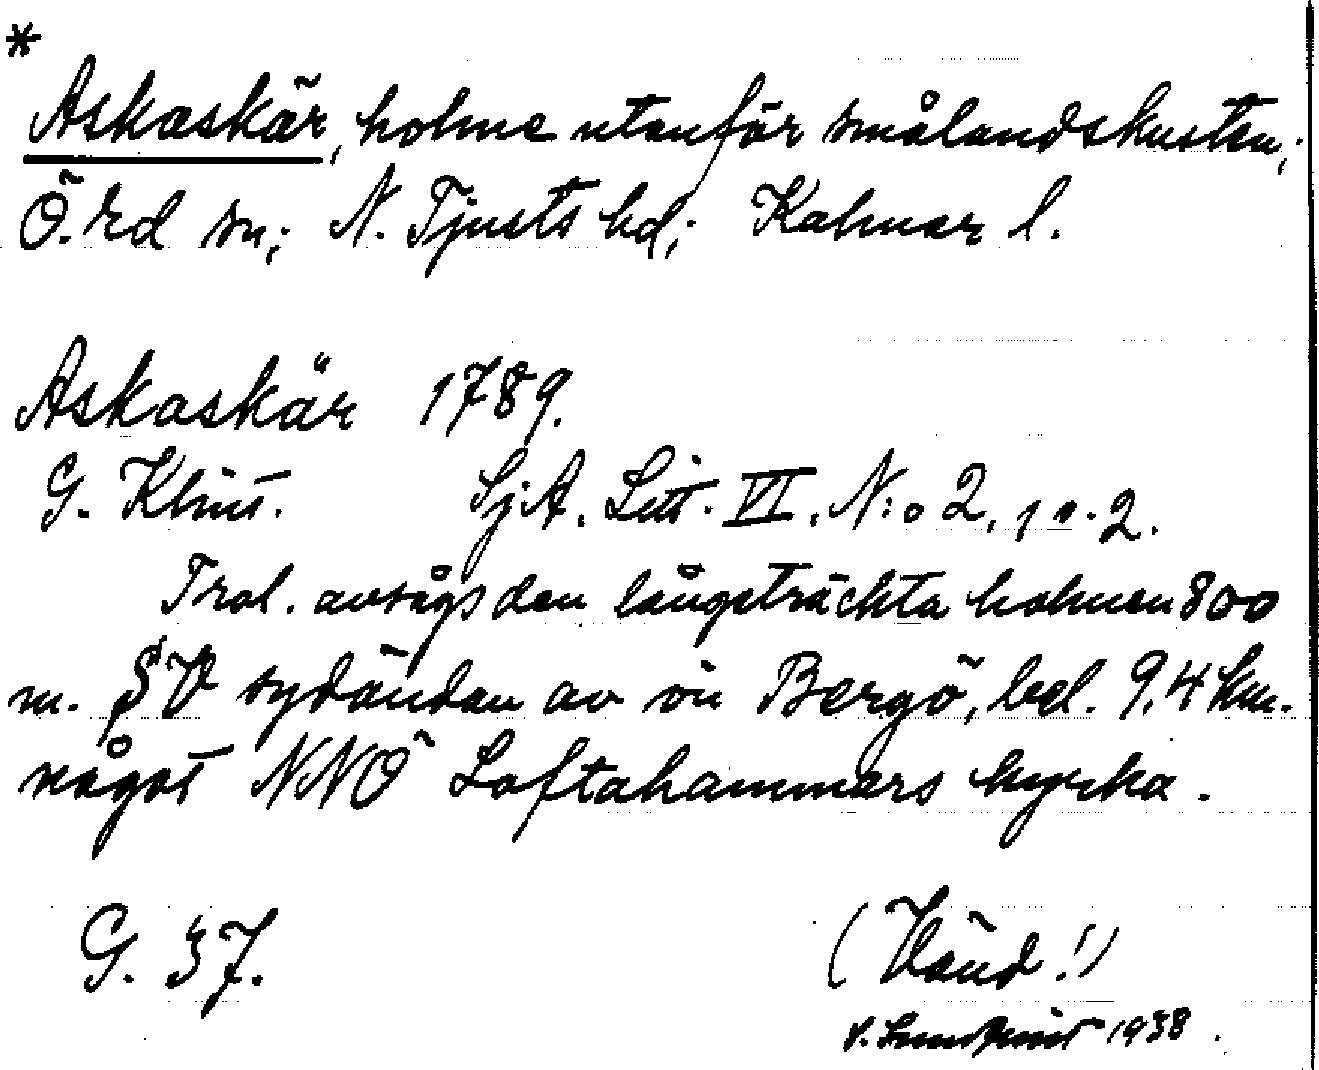 *
Askaskär, holme utanför smålandskusten;
Ö. Ed sn; N. Tjusts hd; Kalmar l.
Askaskär 1789.
G. Klint. SjA. Litt. VI. N:o 2, 1 o. 2.
Trol. avsågs den långsträckta holmen 800
m. SV sydändan av ön Bergö, bel. 9,4 km.
något NNÖ Loftahammars kyrka.
G. 37. (Vänd!)
V. Lundkvist 1938.